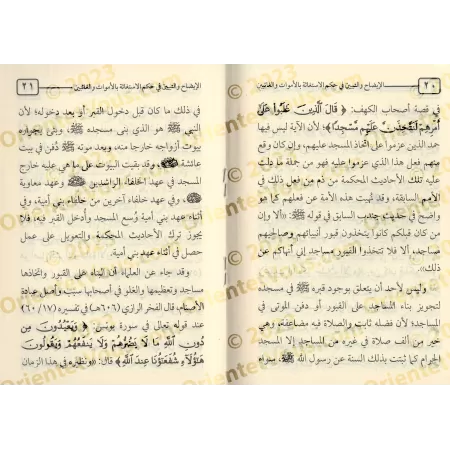 ٢٠
الإيضاح والتبيين في حكم الاستغاثة بالأموات والغائبين
في قصة أصحاب الكهف: ﴿ قَالَ الَّذِينَ غَلَبُوا عَلَىٰ
أَمْرِهِمْ لَنَتَّخِذَنَّ عَلَيْهِم مَّسْجِدًا ﴾؛ لأن الآية ليس فيها
حمد الذين عزموا على اتخاذ المسجد عليهم، وإن كان وقع
منهم فعل هذا الذي عزموا عليه فهو من جملة ما دلت
عليه تلك الأحاديث المحكمة من ذم من فعل ذلك في
الأمم السابقة، وقد نُهيت هذه الأمة عن فعلهم كما هو
واضح في حديث جندب السابق في قوله ﷺ: «ألا وإن
من كان قبلكم كانوا يتخذون قبور أنبيائهم وصالحيهم
مساجد، ألا فلا تتخذوا القبور مساجد إني أنهاكم عن
ذلك».
وليس لأحد أن يتعلق بوجود قبره ﷺ في مسجده
لتجويز بناء المساجد على القبور أو دفن الموتى في
المساجد؛ لأن فضله ثابت والصلاة فيه مضاعفة، وهي
خير من ألف صلاة في غيره من المساجد إلا المسجد
الحرام كما ثبتت بذلك السنة عن رسول الله ﷺ، سواء
الإيضاح والتبيين في حكم الاستغاثة بالأموات والغائبين
٢١
في ذلك ما كان قبل دخول القبر أو بعد دخوله؛ لأن
النبي ﷺ هو الذي بنى مسجده ﷺ، وبنى بجواره
بيوت أزواجه خارجة منه، وبعد موته ﷺ دُفن في بيت
عائشة، وقد بقيت البيوت على ما هي عليه خارج
المسجد في عهد الخلفاء الراشدين وعهد معاوية
، وفي عهد خلفاء آخرين من خلفاء بني أمية، وفي
أثناء عهد بني أمية وُسع المسجد وأدخل القبر فيه، فلا
يجوز ترك الأحاديث المحكمة والتعويل على عمل
حصل في أثناء عهد بني أمية.
وقد جاء عن العلماء أن البناء على القبور واتخاذها
مساجد وتعظيمها والغلو في أصحابها سبب وأصل عبادة
الأصنام، قال الفخر الرازي (٦٠٦هـ) في تفسيره (٦٠/١٧)
عند قوله تعالى في سورة يونس: ﴿ وَيَعْبُدُونَ مِن
دُونِ اللَّهِ مَا لَا يَضُرُّهُمْ وَلَا يَنفَعُهُمْ وَيَقُولُونَ
هَٰؤُلَاءِ شُفَعَاؤُنَا عِندَ اللَّهِ ﴾ قال: «ونظيره في هذا الزمان